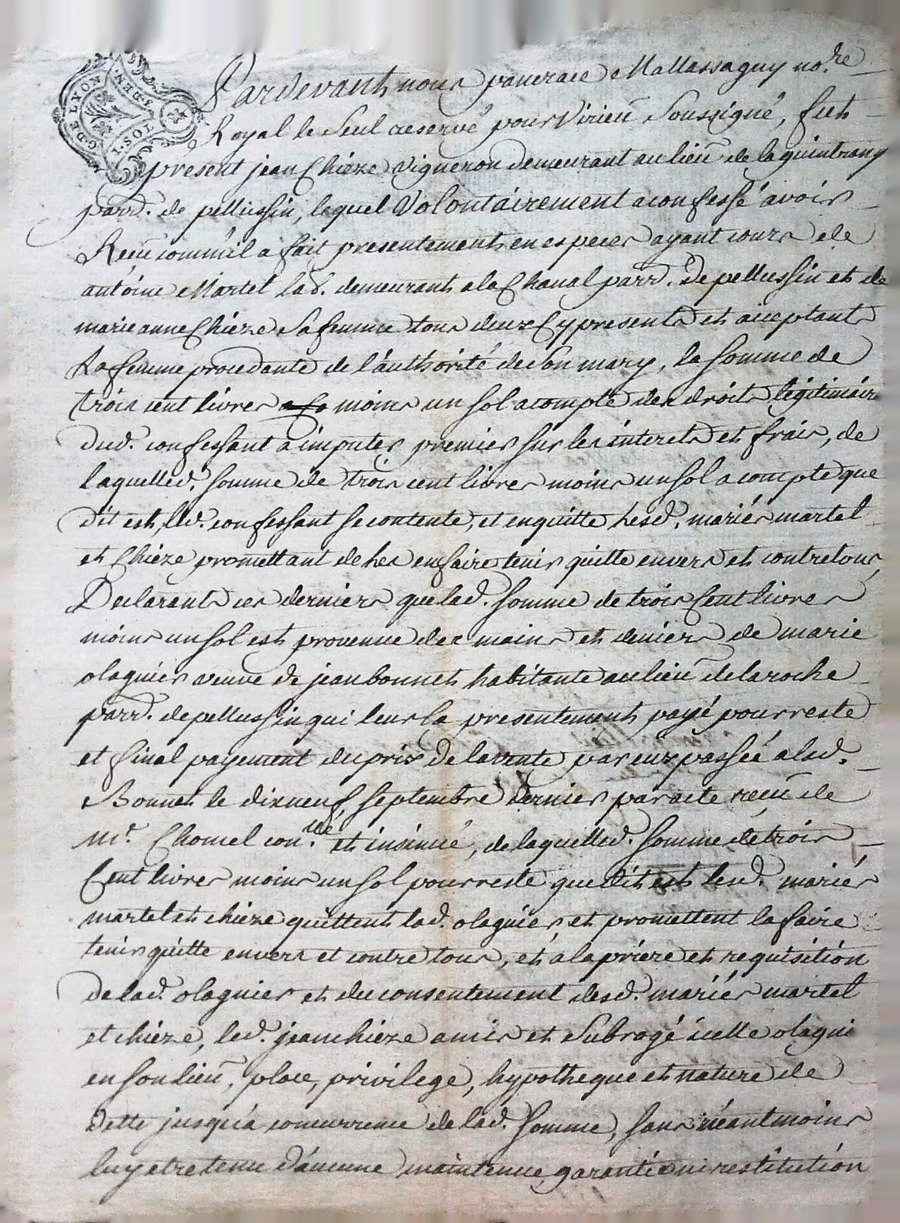 G. DE LYON
I. SOL
Pardevant nous pancrace Mallassagny no.re
Royal le Seul reservé pour Virieu Soussigné, fut
present jean Chieze vigneron demeurant au lieu de la quintrany
parr. de pellussin, lequel Volontairement a confessé avoir
Receu comm'il a fait presentement en especes ayant cours de
antoine Martel lab. demeurant a la Chanal parr. De pellussin et de
marie anne Chieze sa femme tous deux Cy presents et acceptant
La femme procedante de l'authorité de son mary, la somme de
trois cent livres moins un sol a compte des droits légitimaire
dud. confessant a imputer premier sur les interets et frais, de
laquelled. somme de trois cent livres moins un sol a compte que
dit est, led. confessant se contente, et en quitte lesd. mariés martel
et Chieze promettant de les en faire tenir quitte envers et contre tous,
Declarants ces derniers que lad. somme de trois Cent livres
moins un sol est provenue des mains et deniers de marie
olagnier veuve de jean bonnet habitante au lieu de la roche
parr. de pellussin qui leur la presentement payé pour reste
et final payement du prix de la vente par eux passée a lad.
Bonnet le dix neuf septembre dernier par acte receu de
m.r Chomel con.lé et insinué, de laquelled. somme de trois
Cent livres moins un sol pour reste que dit est lesd. mariés
martel et chieze quittent lad. olagnier et promettent la faire
tenir quitte envers et contre tous, et a la prière et requisition
de lad. olagnier et du consentement desd. mariés martel
et chieze, led. jean chieze a mis et Subrogé icelle olagni
en son lieu, place, privilege, hypotheque et nature de
dette jusqu'a concurrence de lad. somme, sans néantmoins
luy etre tenu d'aucune maintenue, garantie ni restitution